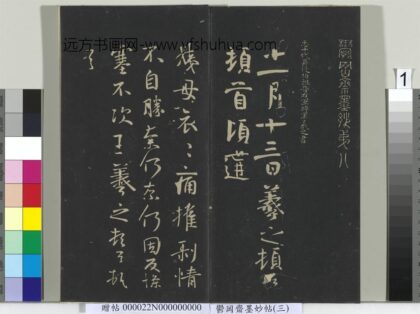 远方书画网-www.yfshuhua.com
1
鬱岡齋墨妙第八
十一月十三日羲之頓首
頓首頃遘
姨母哀〻痛摧剝情
不自勝奈何奈何因反慘
塞不次王羲之頓首頓
首
贈帖 000022N000000000
鬱岡齋墨妙帖(三)